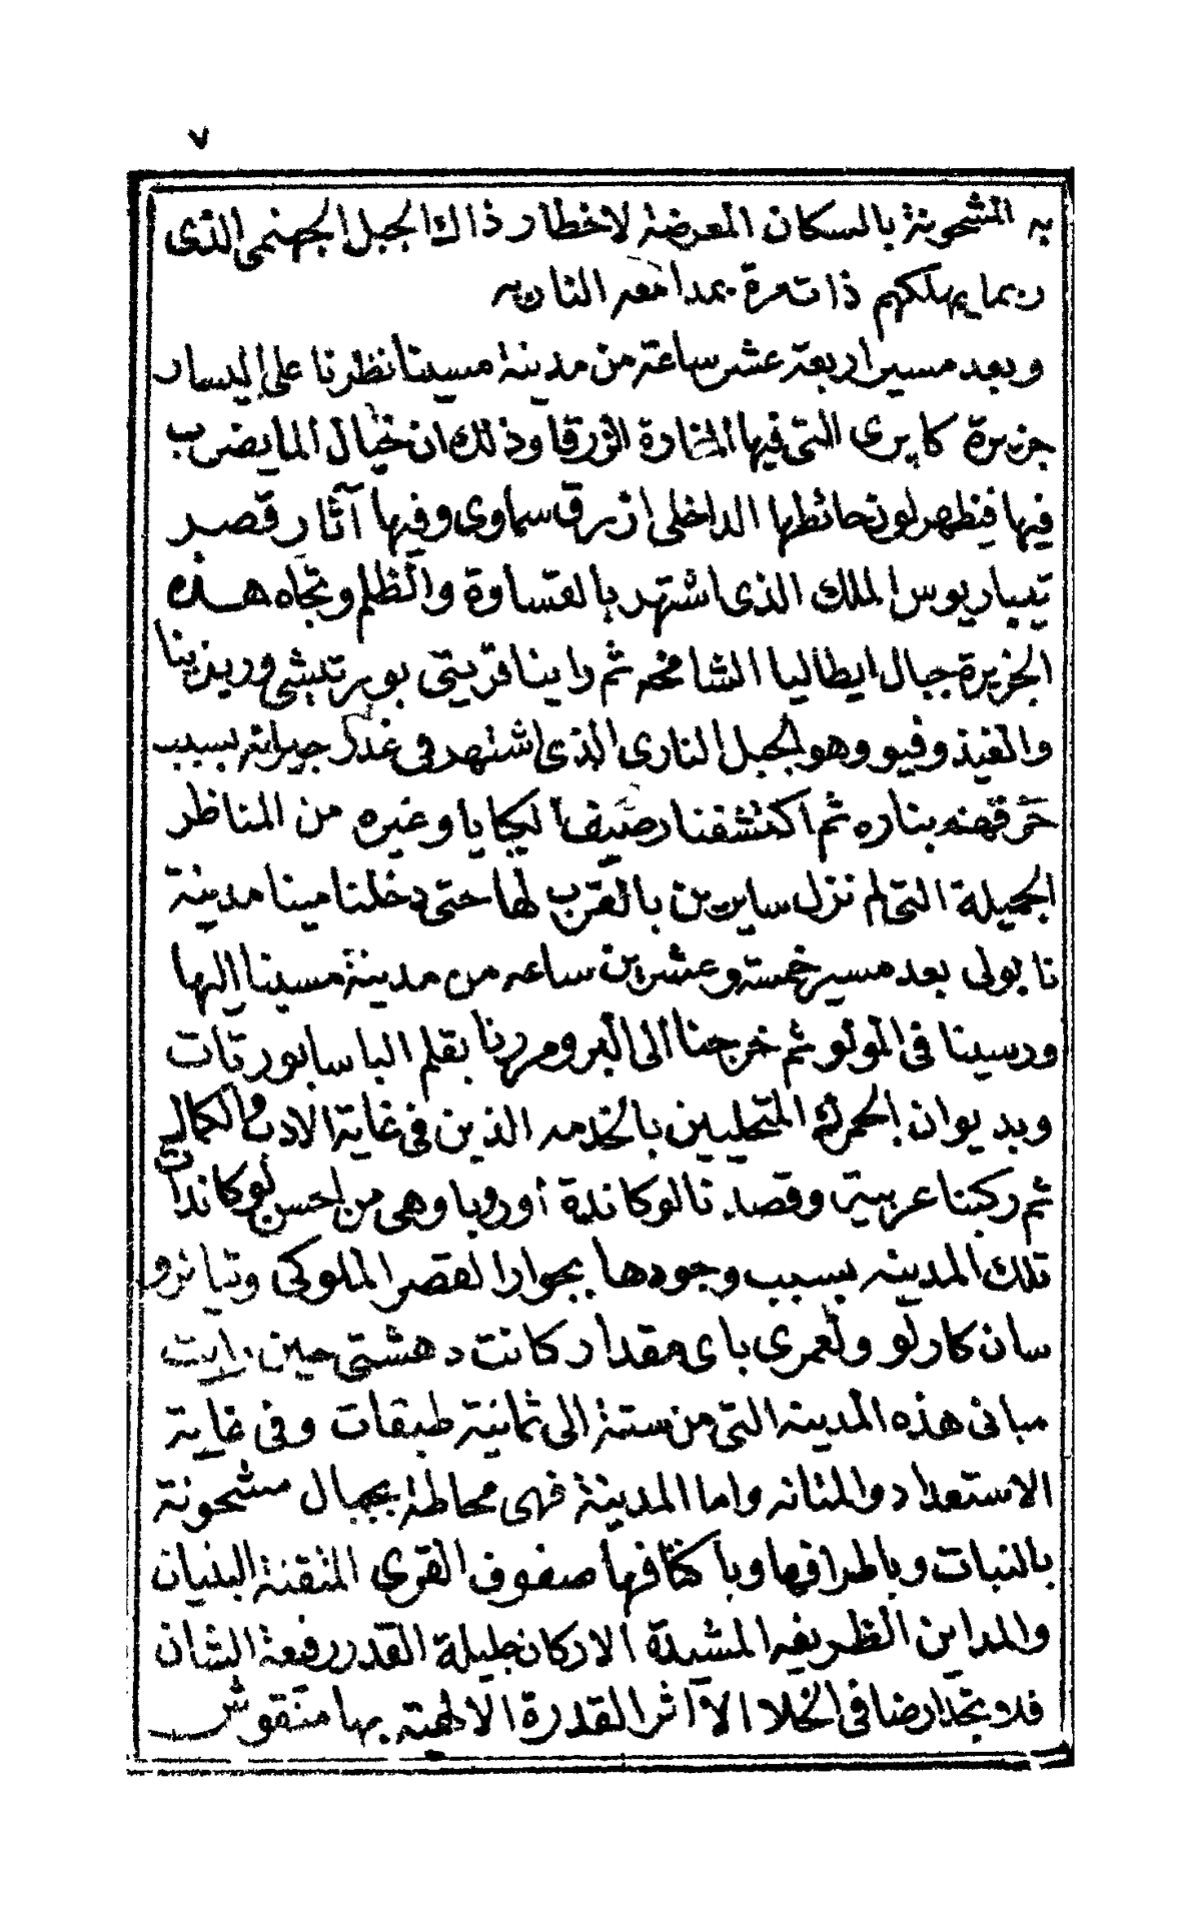 ٧
به المشحونة بالسكان المعرضة لاخطار ذاك الجبل الجهنمى الذى
ربما يهلكهم ذات مرة بمدافعه الناريه
وبعد مسير اربعة عشر ساعة من مدينة مسينا نظرنا على اليسار
جزيرة كابرى التى فيها المغارة الزرقا وذلك ان خيال الما يضرب
فيها فيظهر لون حائطها الداخلى ازرق سماوى وفيها آثار قصر
تيباريوس الملك الذى اشتهر بالقساوة والظلم وتجاه هذه
الجزيرة جبال ايطاليا الشامخه ثم راينا قريتى بورتيشى وريزينا
والفيزوفيو وهو الجبل النارى الذى اشتهر فى غدر جيرانه بسبب
حرقهم بناره ثم اكتشفنا رصيف كيايا وغيره من المناظر
الجميلة التى لم نزل سايرين بالقرب لها حتى دخلنا مينا مدينة
نابولى بعد مسير خمسة وعشرين ساعه من مدينة مسينا اليها
ورسينا فى المولو ثم خرجنا الى البر ومررنا بقلم الباسابورتات
وبديوان الجمرك المتحليين بالخدمه الذين فى غاية الادب والكمال
ثم ركبنا عربية وقصدنا لوكاندة أوروبا وهى من احسن لوكاندات
تلك المدينه بسبب وجودها بجوار القصر الملوكى وتياترو
سان كارلو ولعمرى باى مقدار كانت دهشتى حين رايت
مبانى هذه المدينه التى من ستة الى ثمانية طبقات وفى غاية
الاستعداد والمتانه واما المدينة فهى محاطة بجبال مشحونة
بالنبات وباطرافها وباكتافها صفوف القرى المتقنة البنيان
والمداين الظريفه المشيدة الاركان جليلة القدر رفيعة الشان
فلا وتجد ارضا فى الخلا الا آثر القدرة الالهية بها منقوش